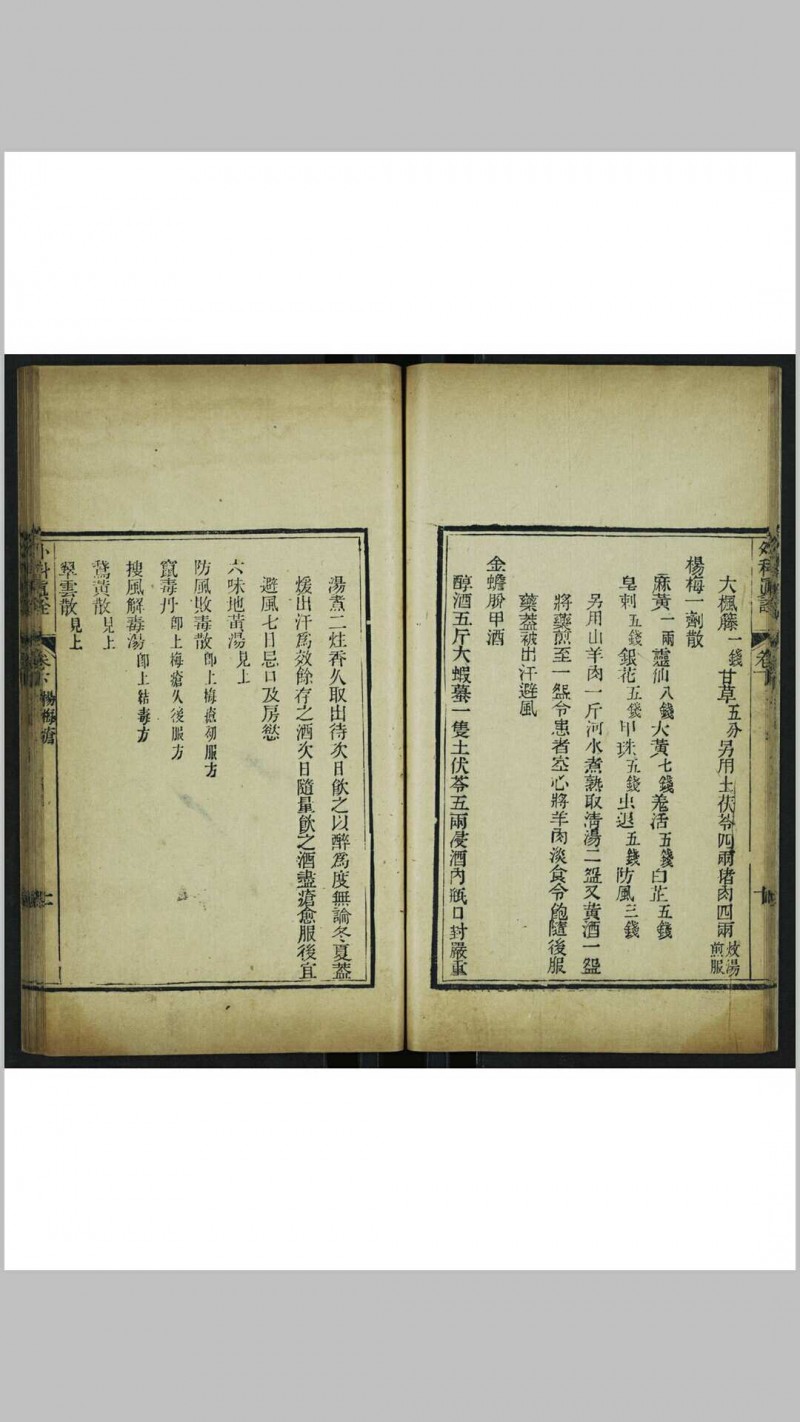 大楓藤一錢甘草五分另用土茯苓四兩猪肉四兩炆湯煎服
楊梅一劑散
麻黃一兩靈仙八錢大黃七錢羗活五錢白芷五錢
皂刺五錢銀花五錢甲珠五錢虫退五錢防風三錢
另用山羊肉一斤河水煮熟取淸湯二盌又黃酒一盌
將藥煎至一盌令患者空心將羊肉淡食令飽隨後服
藥葢被出汗避風
金蟾脫甲酒
醇酒五斤大蝦蟇一隻土伏苓五兩浸酒內瓶口封嚴重
湯煮二炷香久取出待次日飲之以醉爲度無論冬夏葢
煖出汗爲效餘存之酒次日隨量飲之酒盡瘡愈服後宜
避風七日忌口及房慾
六味地黃湯見上
防風敗毒散卽上梅瘡初服方
竄毒丹卽上梅瘡久後服方
搜風解毒湯卽上結毒方
鵞黃散見上
翠雲散見上
外科眞詮 卷下 楊梅瘡